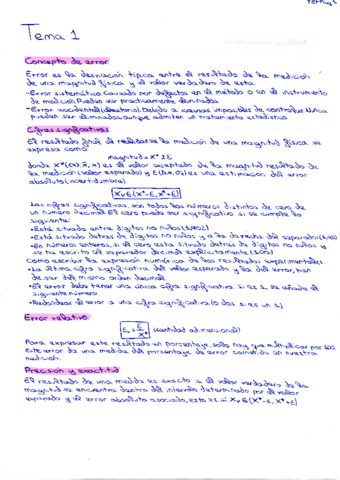 Tema 1
Concepto de error
Error es la desviación típica entre el resultado de la medición
de una magnitud física y el valor verdadero de esta
-Error sistemático: Causado por defectos en el método o en el instrumento
de medición. Pueden ser prácticamente eliminados
-Error accidental (aleatorio): Debido a causas imposibles de controlar. Nunca
pueden ser eliminados aunque admiten un tratamiento estadístico
Cifras significativas
El resultado final de realizarse la medición de una magnitud física se
expresa como
magnitud = X* ± E
donde X* es el valor aceptado de la magnitud resultado de
la medición (valor esperado) y E es una estimación del error
absoluto (incertidumbre)
Xv ∈ (X*-E, X*+E)
Las cifras significativas son todos los números distintos de cero de
un número decimal. El cero puede ser significativo si se cumple lo
siguiente:
•Está situado entre dígitos no nulos
•Está situado detrás de dígitos no nulos y a la derecha del separador
•En números enteros, si el cero está situado detrás de dígitos no nulos y
se ha escrito el separador decimal explícitamente
Cómo escribir la expresión numérica de los resultados experimentales
•La última cifra significativa del valor esperado y la del error, han
de ser del mismo orden decimal
•El error debe tener una única cifra significativa. Si es 1, se añade el
siguiente número
•Redondear el error a una cifra significativa (o dos si es un 1)
Error relativo
Er = E/X* (cantidad adimensional)
Para expresar este resultado en porcentaje, solo hay que multiplicar por 100
Este error da una medida del porcentaje de error cometido en nuestra
medición.
Precisión y exactitud
El resultado de una medida es exacto si el valor verdadero de la
magnitud se encuentra dentro del intervalo determinado por el valor
esperado y el error absoluto asociado, esto es si Xv ∈ (X*-E, X*+E)